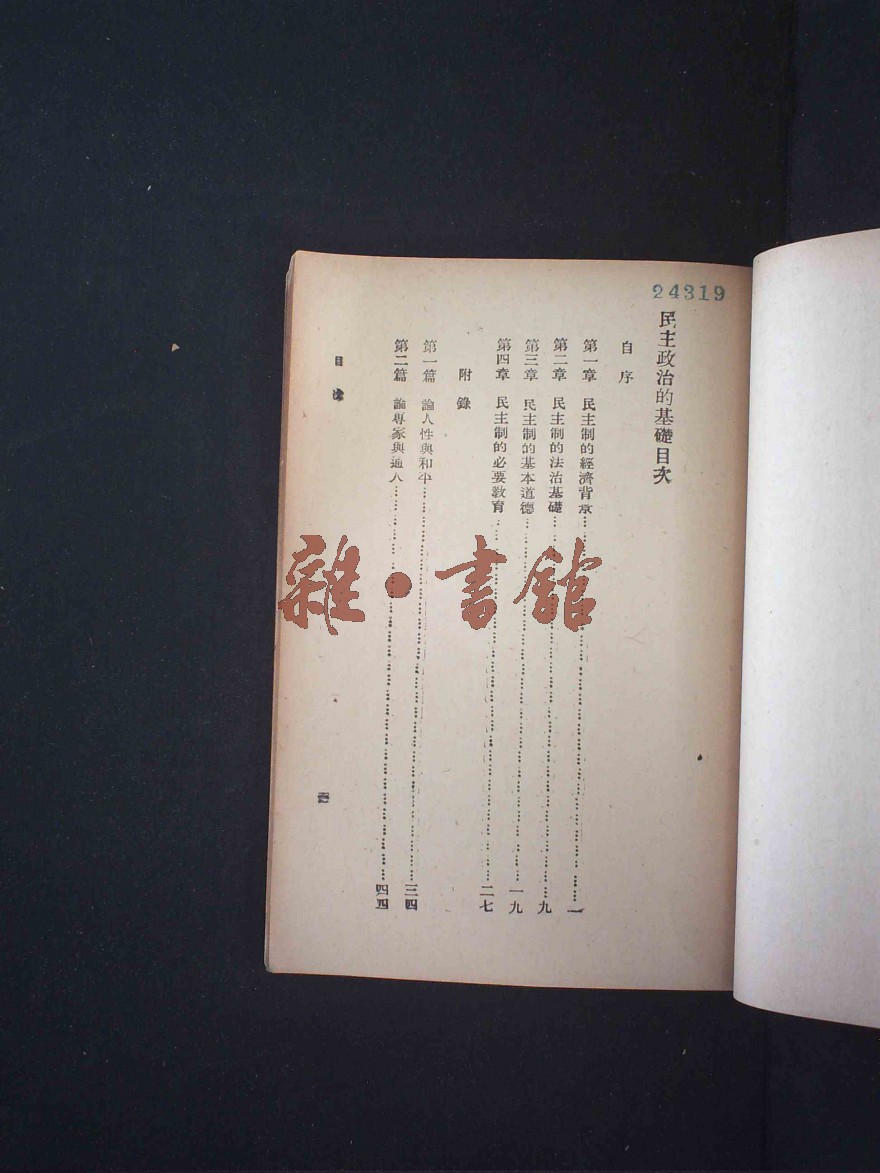 24319
民主政治的基礎目次
自序
第一章 民主制的經濟背景……一
第二章 民主制的法治基礎……九
第三章 民主制的基本道德……一九
第四章 民主制的必要教育……二七
附錄
第一篇 論人性與和平……三四
第二篇 論專家與通人……四四
目次
雜·書館